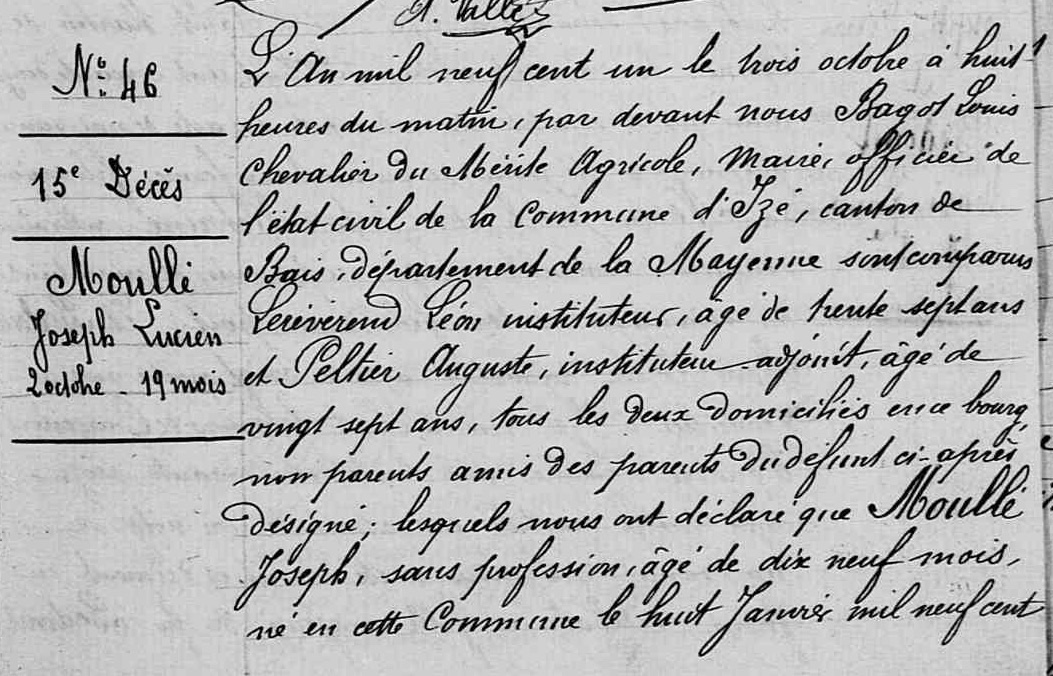 A. Vallée
N° 46
15e Décès
Moullé
Joseph Lucien
2 octobre - 19 mois
L'An mil neuf cent un le trois octobre à huit
heures du matin, par devant nous Bagot Louis
Chevalier du Mérite Agricole, Maire, officier de
l'état civil de la Commune d'Izé, canton de
Bais, département de la Mayenne sont comparus
Lerévérend Léon instituteur, âgé de trente sept ans
et Peltier Auguste, instituteur-adjoint, âgé de
vingt sept ans, tous les deux domiciliés en ce bourg,
non parents amis des parents du défunt ci-après
désigné; lesquels nous ont déclaré que Moullé
Joseph, sans profession, âgé de dix neuf mois,
né en cette Commune le huit Janvier mil neuf cent